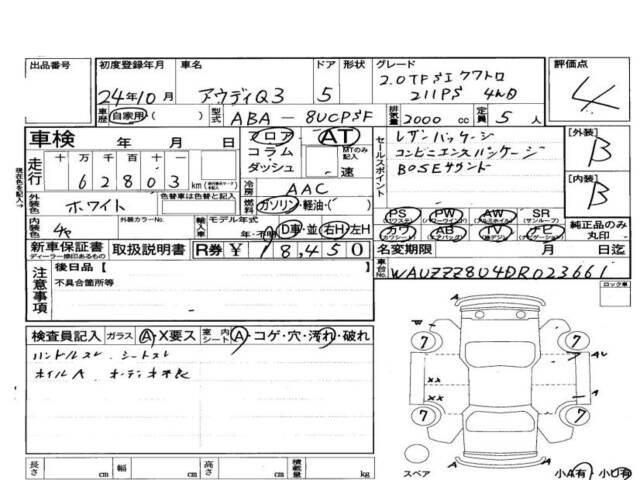 出品番号 初度登録年月 車名 ドア 形状 グレード 評価点
24年10月 アウディQ3 5 2.0TFSI クワトロ
211PS 4WD
4
車歴 自家用・( ) 型式 ABA - 8UCPSF 排気量 2000 cc 定員 5 人
車検 年 月 日 フロア AT
コラム MTのみ記入
ダッシュ 速
セールスポイント レザーパッケージ
コンビニエンスパッケージ
BOSEサウンド
[外装] B
[内装] B
現在色を記入→
走行 十 万 千 百 十 一
6 2 8 0 3 km
冷房 AAC
外装色 ホワイト 色替車は色替と記入 燃料 ガソリン・軽油・( )
内装色 外装カラーNo. 輸入車 モデル年式 年・不明 D車・並 右H・左H
PS PW AW SR
(パワステ) (パワーウインドウ) (アルミホイル) (サンルーフ)
カワ AB TV ナビ
(革シート) (エアバッグ) (ナビゲーション)
純正品のみ丸印
新車保証書 ディーラー捺印あるもの 取扱説明書 R券 ¥ 18,450 名変期限 月 日迄
注意事項 後日品【 】
不具合箇所等
車台No. WAUZZZ8U4DR023661
ロック車
検査員記入 ガラス A・X要ス 室内シート A・コゲ・穴・汚れ・破れ
ハンドルスレ シートスレ
ホイルA オーディオ不良
A
W 7 7 AU
XX
XX A
7 7
A A
スペア 小A有 小U有
長さ cm 幅 cm 高さ cm 積載量 kg